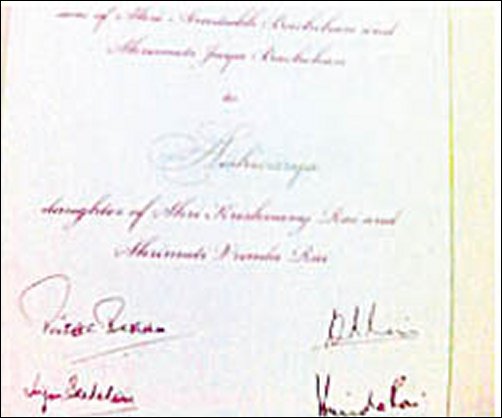 son of Shri Amitabh Bachchan and
Shrimati Jaya Bachchan
to
Aishwarya
daughter of Shri Krishnaraj Rai and
Shrimati Vrinda Rai
Jaya Bachchan Vrinda Rai